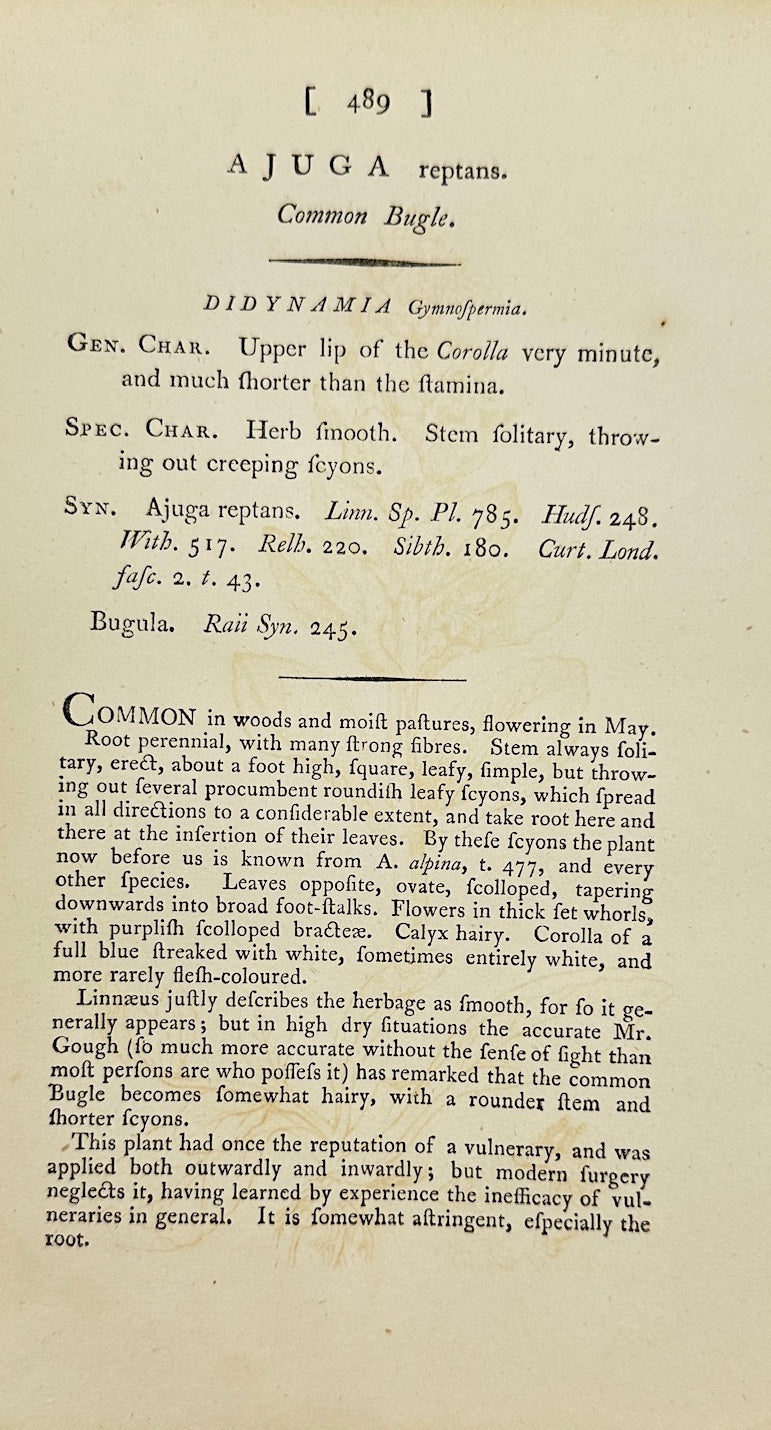 [ 489 ]
AJUGA reptans.
Common Bugle.
DIDYNAMIA Gymnoſpermia.
GEN. CHAR. Upper lip of the Corolla very minute,
and much ſhorter than the ſtamina.
SPEC. CHAR. Herb ſmooth. Stem ſolitary, throw-
ing out creeping ſcyons.
SYN. Ajuga reptans. Linn. Sp. Pl. 785. Hudſ. 248.
With. 517. Relh. 220. Sibth. 180. Curt. Lond.
faſc. 2. t. 43.
Bugula. Raii Syn. 245.
COMMON in woods and moiſt paſtures, flowering in May.
Root perennial, with many ſtrong fibres. Stem always ſoli-
tary, erect, about a foot high, ſquare, leafy, ſimple, but throw-
ing out ſeveral procumbent roundiſh leafy ſcyons, which ſpread
in all directions to a conſiderable extent, and take root here and
there at the inſertion of their leaves. By theſe ſcyons the plant
now before us is known from A. alpina, t. 477, and every
other ſpecies. Leaves oppoſite, ovate, ſcolloped, tapering
downwards into broad foot-ſtalks. Flowers in thick ſet whorls,
with purpliſh ſcolloped bracteæ. Calyx hairy. Corolla of a
full blue ſtreaked with white, ſometimes entirely white, and
more rarely fleſh-coloured.
Linnæus juſtly deſcribes the herbage as ſmooth, for ſo it ge-
nerally appears; but in high dry ſituations the accurate Mr.
Gough (ſo much more accurate without the ſenſe of ſight than
moſt perſons are who poſſeſs it) has remarked that the common
Bugle becomes ſomewhat hairy, with a rounder ſtem and
ſhorter ſcyons.
This plant had once the reputation of a vulnerary, and was
applied both outwardly and inwardly; but modern ſurgery
neglects it, having learned by experience the inefficacy of vul-
neraries in general. It is ſomewhat aſtringent, eſpecially the
root.